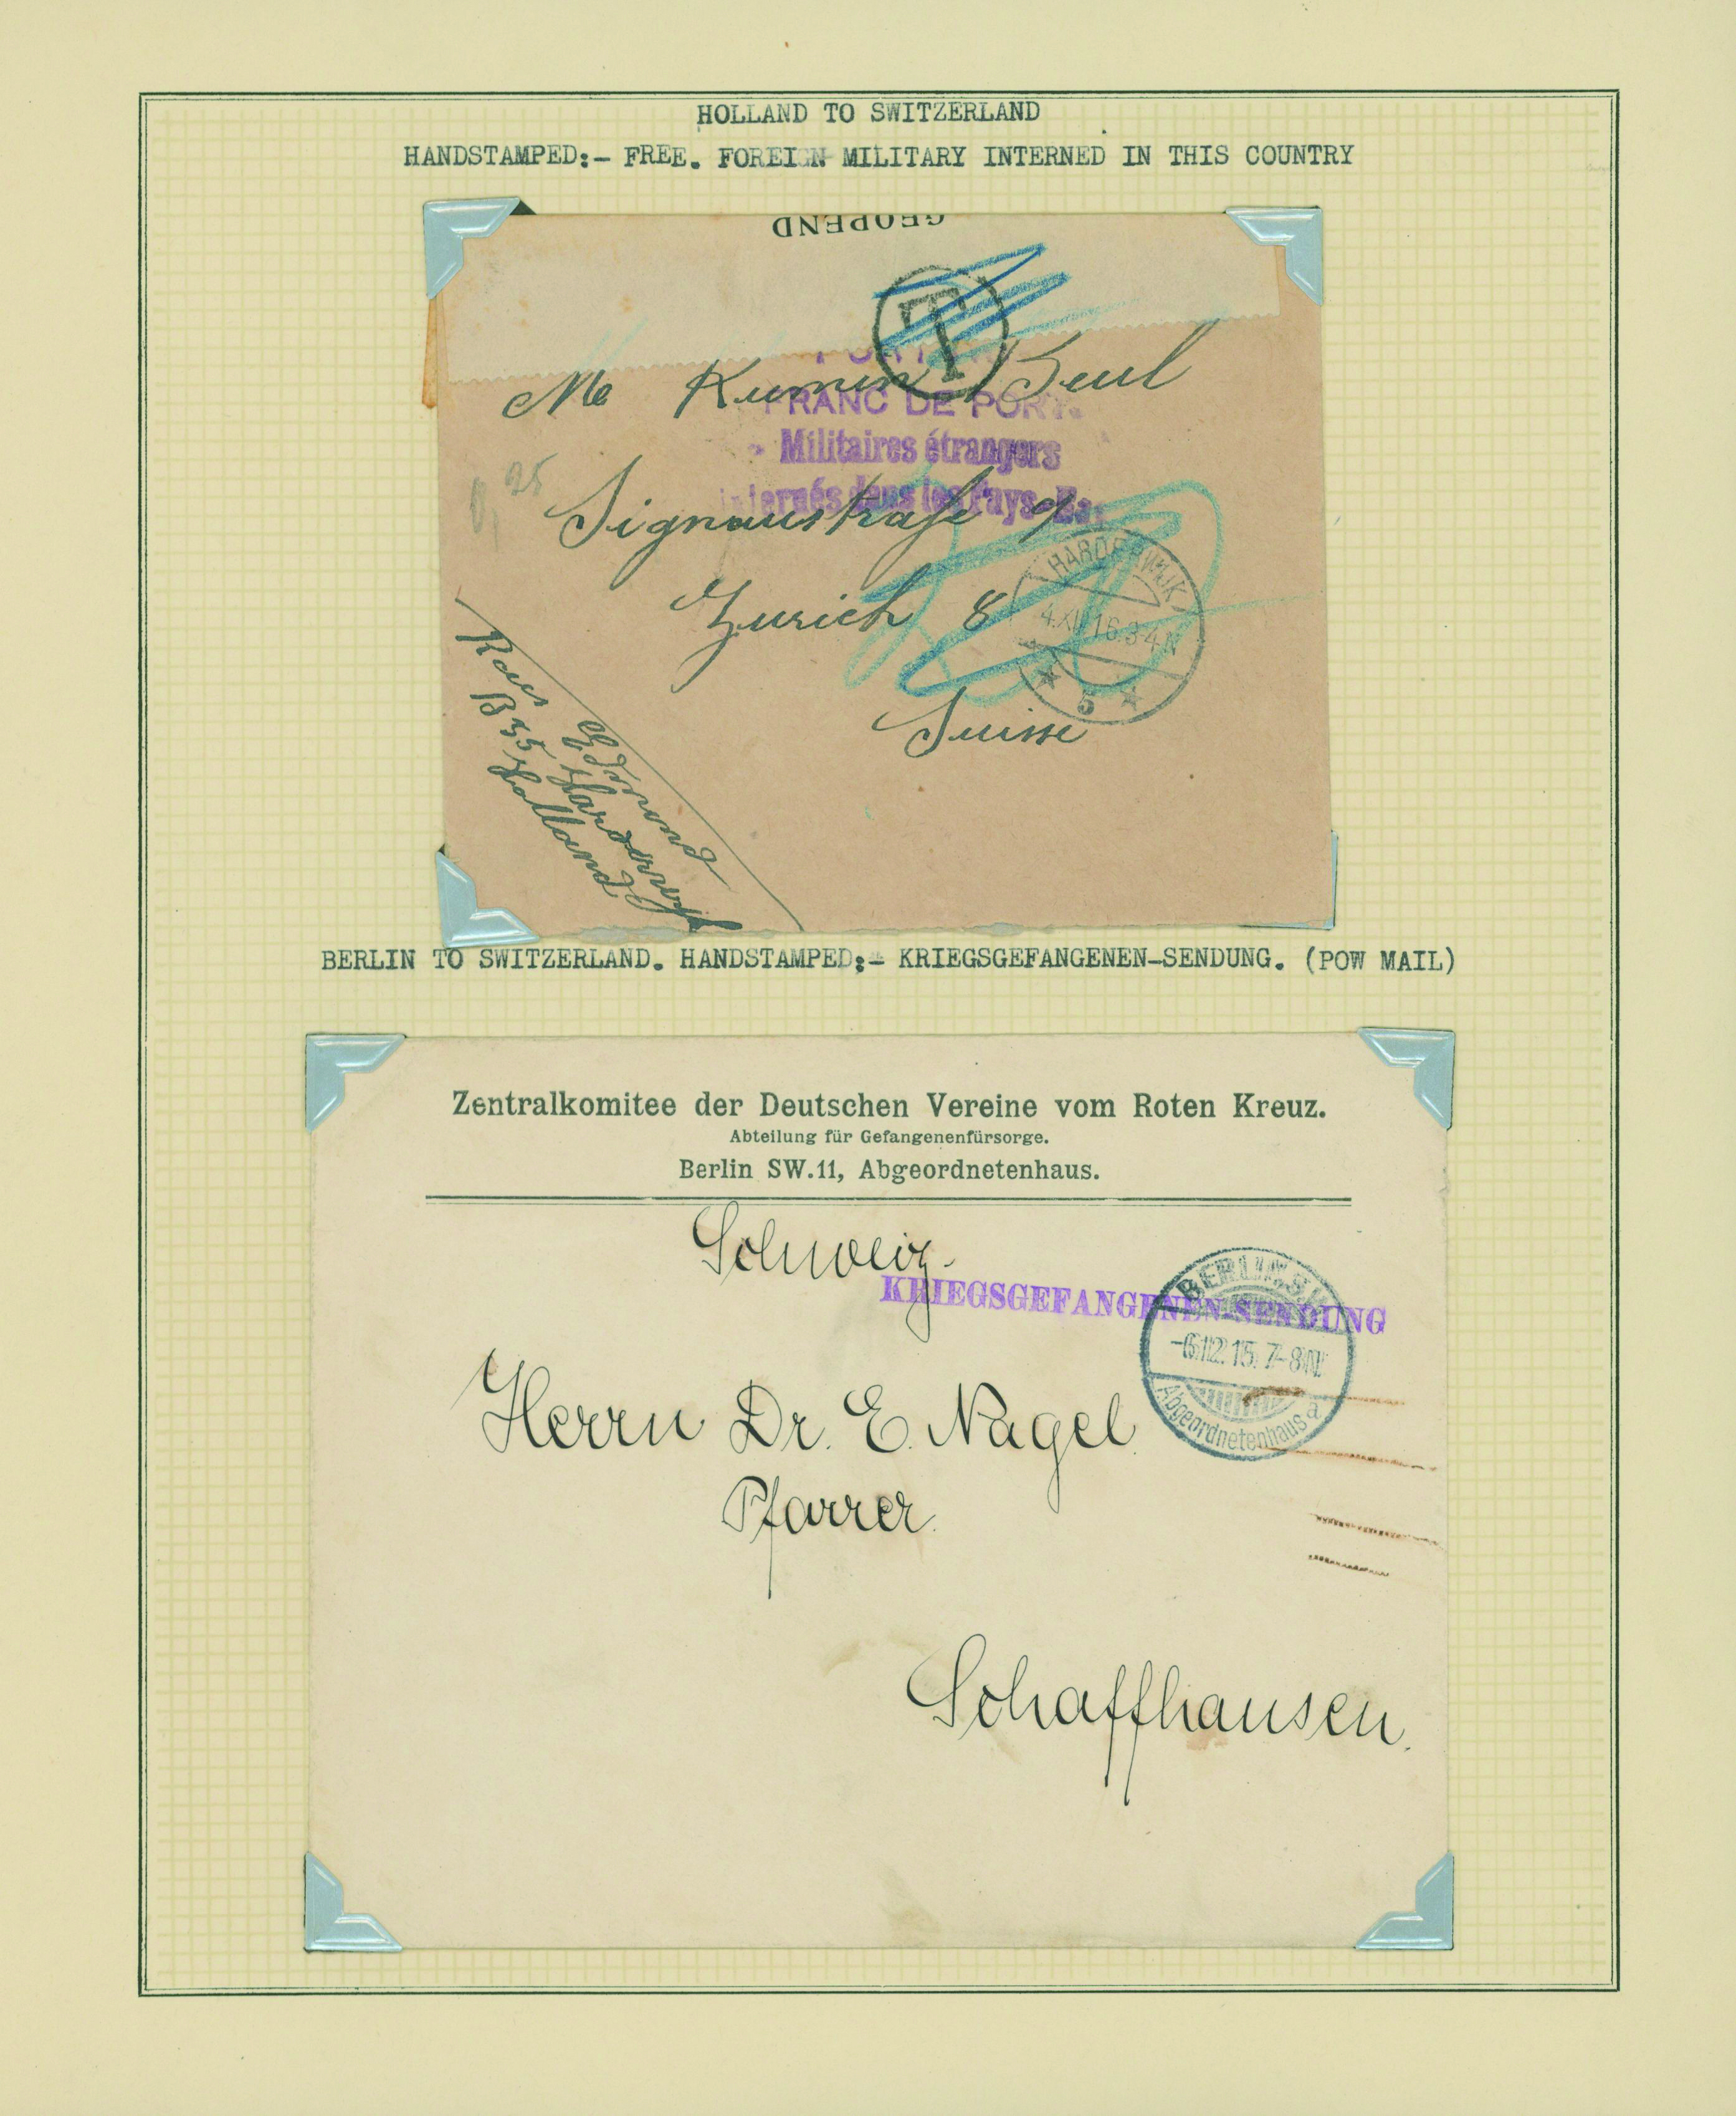 HOLLAND TO SWITZERLAND
HANDSTAMPED:- FREE. FOREIGN MILITARY INTERNED IN THIS COUNTRY
GEOPEND
T
FRANC DE PORT.
Militaires étrangers
internés dans les Pays-Bas
Me Kumin Beul
0,25
Signaustraße 9
Zurich 8
Suisse
HARDERWIJK
4.XII.16.3-4N
5
Edmond
B 35 Harderwyk
Holland
BERLIN TO SWITZERLAND. HANDSTAMPED:- KRIEGSGEFANGENEN-SENDUNG. (POW MAIL)
Zentralkomitee der Deutschen Vereine vom Roten Kreuz.
Abteilung für Gefangenenfürsorge.
Berlin SW.11, Abgeordnetenhaus.
Schweiz.
KRIEGSGEFANGENEN-SENDUNG
BERLIN.SW
-6.12.15.7-8N.
Abgeordnetenhaus a
Herrn Dr. E. Nagel.
Pfarrer.
Schaffhausen.